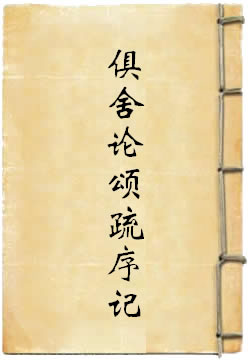 俱舍论颂疏序记